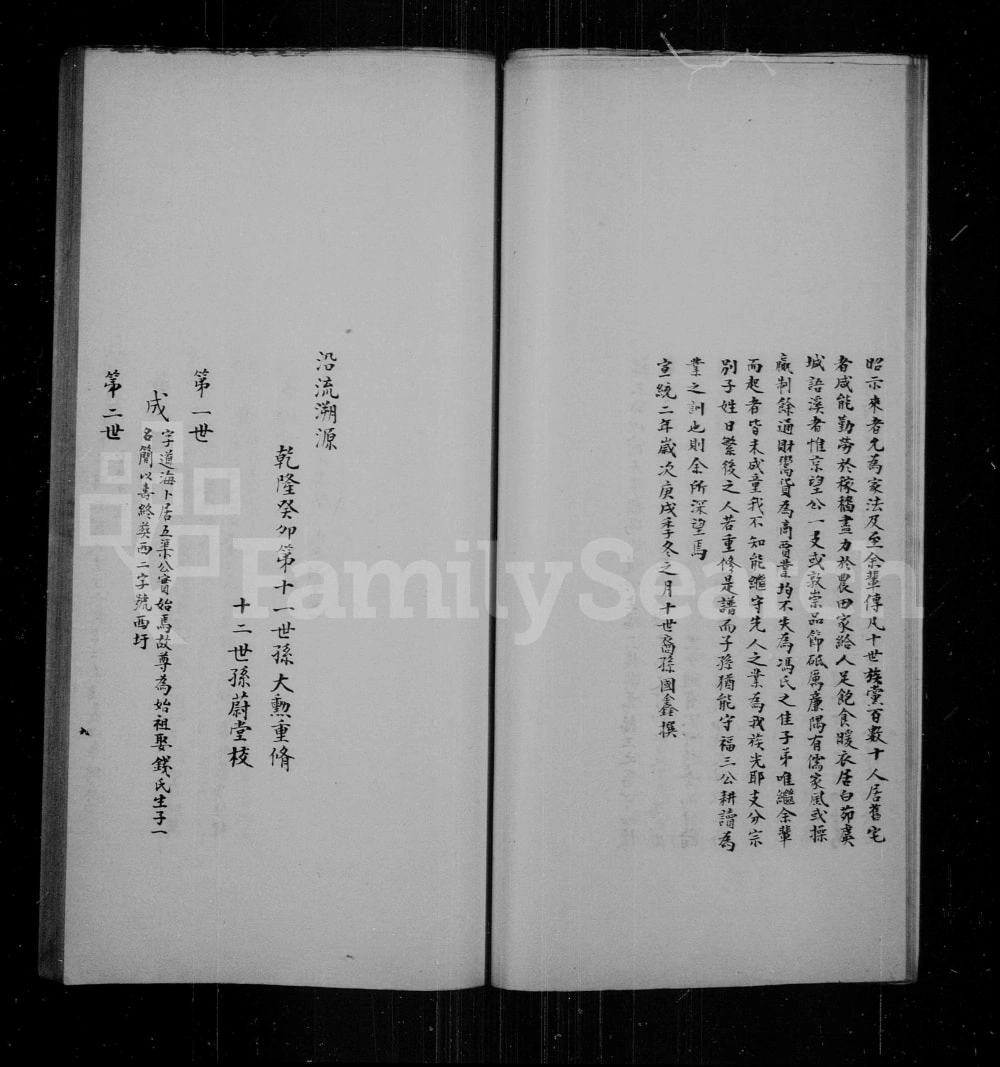 昭示來者尤為家法及至余輩傳凡十世族黨百數十人居舊宅
者咸能勤勞於稼穡盡力於農田家給人足飽食暖衣居白茆虞
城語溪者惟京望公一支或敦崇品節砥厲廉隅有儒家風或操
贏制餘通財鬻貨為商賈業均不失為馮氏之佳子弟唯繼余輩
而起者皆未成童我不知能繼守先人之業為我族光耶支分宗
別子姓日繁後之人若重修是譜而子孫猶能守福三公耕讀為
業之訓也則余所深望焉
宣統二年歲次庚戌季冬之月十世裔孫國鑫撰
沿流溯源
乾隆癸卯第十一世孫大勲重脩
十二世孫蔚堂校
第一世
成 字道海卜居五渠公實始焉故尊為始祖娶錢氏生子一
名簡以壽終葬西二字號西圩
第二世
FamilySearch